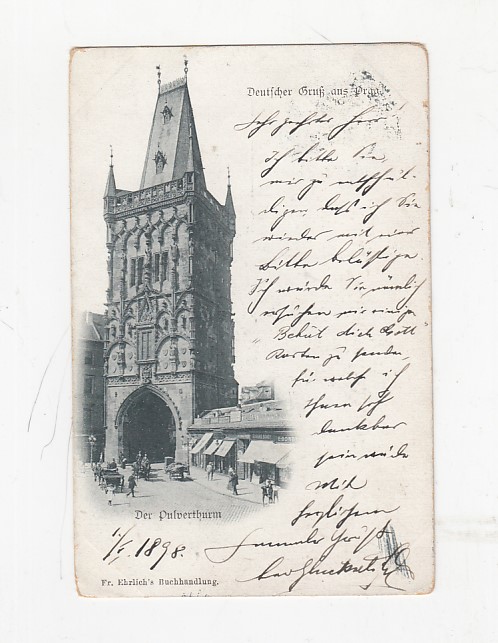 Deutscher Gruß aus Prag.
Sehr geehrter Herr
Ich bitte Sie,
mir zu entschul-
digen, dass ich Sie
wieder mit einer
Bitte belästige.
Ich würde Sie nämlich
ersuchen mir einige
"Behüt dich Gott"
Karten zu senden,
für welche ich
Ihnen sehr
dankbar
sein würde
Mit
herzlichem
Gruß
Der Pulverthurm
1/5 1898.
Fr. Ehrlich's Buchhandlung.